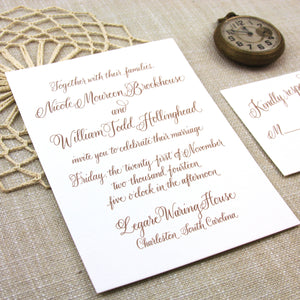 Together with their families
Nicole Maureen Brockhouse
and
William Todd Hollinghead
invite you to celebrate their marriage
Friday, the twenty-first of November
two thousand fourteen
five o'clock in the afternoon
Legare Waring House
Charleston, South Carolina
Kindly
M